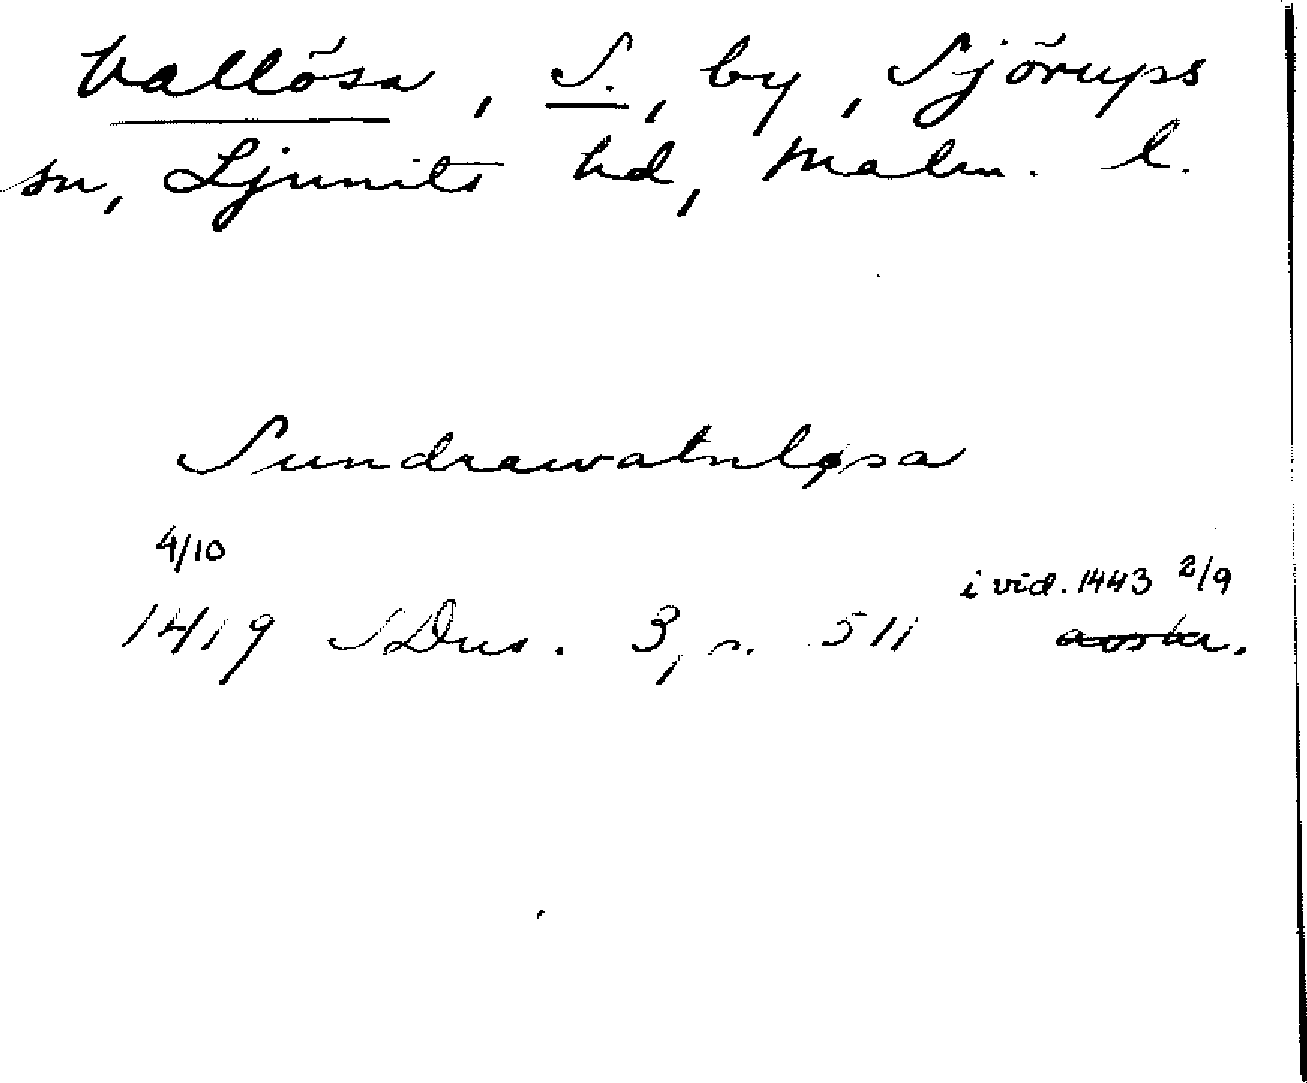 Vallösa, S., by, Sjörups
sn, Ljunits hd, Malm. l.
Sundrawatnløsa
4/10
i vid. 1443 2/9
1419 SDns. 3, s. 511